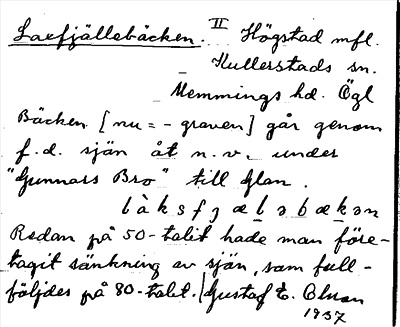 Laxfjällebäcken. II Högstad mfl.
Kullerstads sn.
Memmings hd. Ögl
Bäcken [nu = - graven] går genom
f. d. sjön åt n. v. under
"Gunnars Bro" till Glan.
làksfjæləbækən
Redan på 50-talet hade man före-
tagit sänkning av sjön, som full-
följdes på 80-talet. / Gustaf E. Olsson
1937